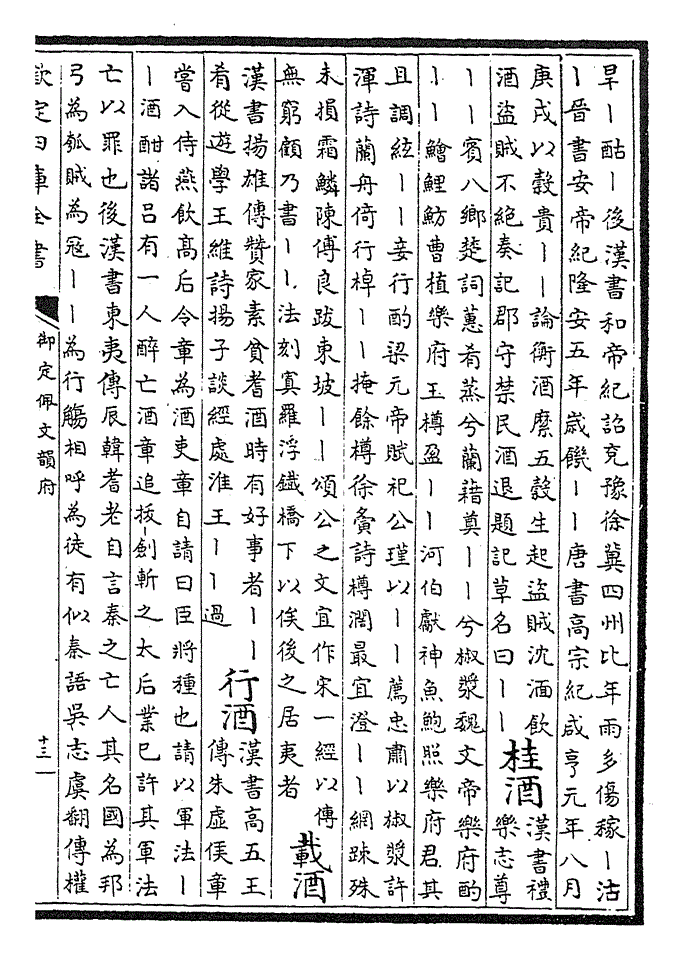 旱丨酤丨後漢書和帝紀詔兖豫徐冀四州比年雨多傷稼丨沽
丨晉書安帝紀隆安五年歲饑丨丨唐書高宗紀咸亨元年八月
庚戌以穀貴丨丨論衡酒縻五穀生起盜賊沈湎飲
酒盜賊不絕奏記郡守禁民酒退題記草名曰丨丨
桂酒
漢書禮
樂志尊
丨丨賓八鄉楚詞蕙肴蒸兮蘭藉奠丨丨兮椒漿魏文帝樂府酌
丨丨鱠鯉魴曹植樂府玉樽盈丨丨河伯獻神魚鮑照樂府君其
且調絃丨丨妾行酌梁元帝賦祀公瑾以丨丨薦忠肅以椒漿許
渾詩蘭舟倚行棹丨丨掩餘樽徐夤詩樽濶最宜澄丨丨網踈殊
未損霜鱗陳傅良跋東坡丨丨頌公之文宜作宋一經以傳
無窮顧乃書丨丨法刻寘羅浮鐵橋下以俟後之居夷者
載酒
漢書揚雄傳贊家素貧耆酒時有好事者丨丨
肴從遊學王維詩揚子談經處淮王丨丨過
行酒
漢書高五王
傳朱虛侯章
嘗入侍燕飲高后令章為酒吏章自請曰臣將種也請以軍法丨
丨酒酣諸呂有一人醉亡酒章追拔劍斬之太后業已許其軍法
亡以罪也後漢書東夷傳辰韓耆老自言秦之亡人其名國為邦
弓為弧賊為冦丨丨為行觴相呼為徒有似秦語吳志虞翻傳權
欽定四庫全書
御定佩文韻府
十三